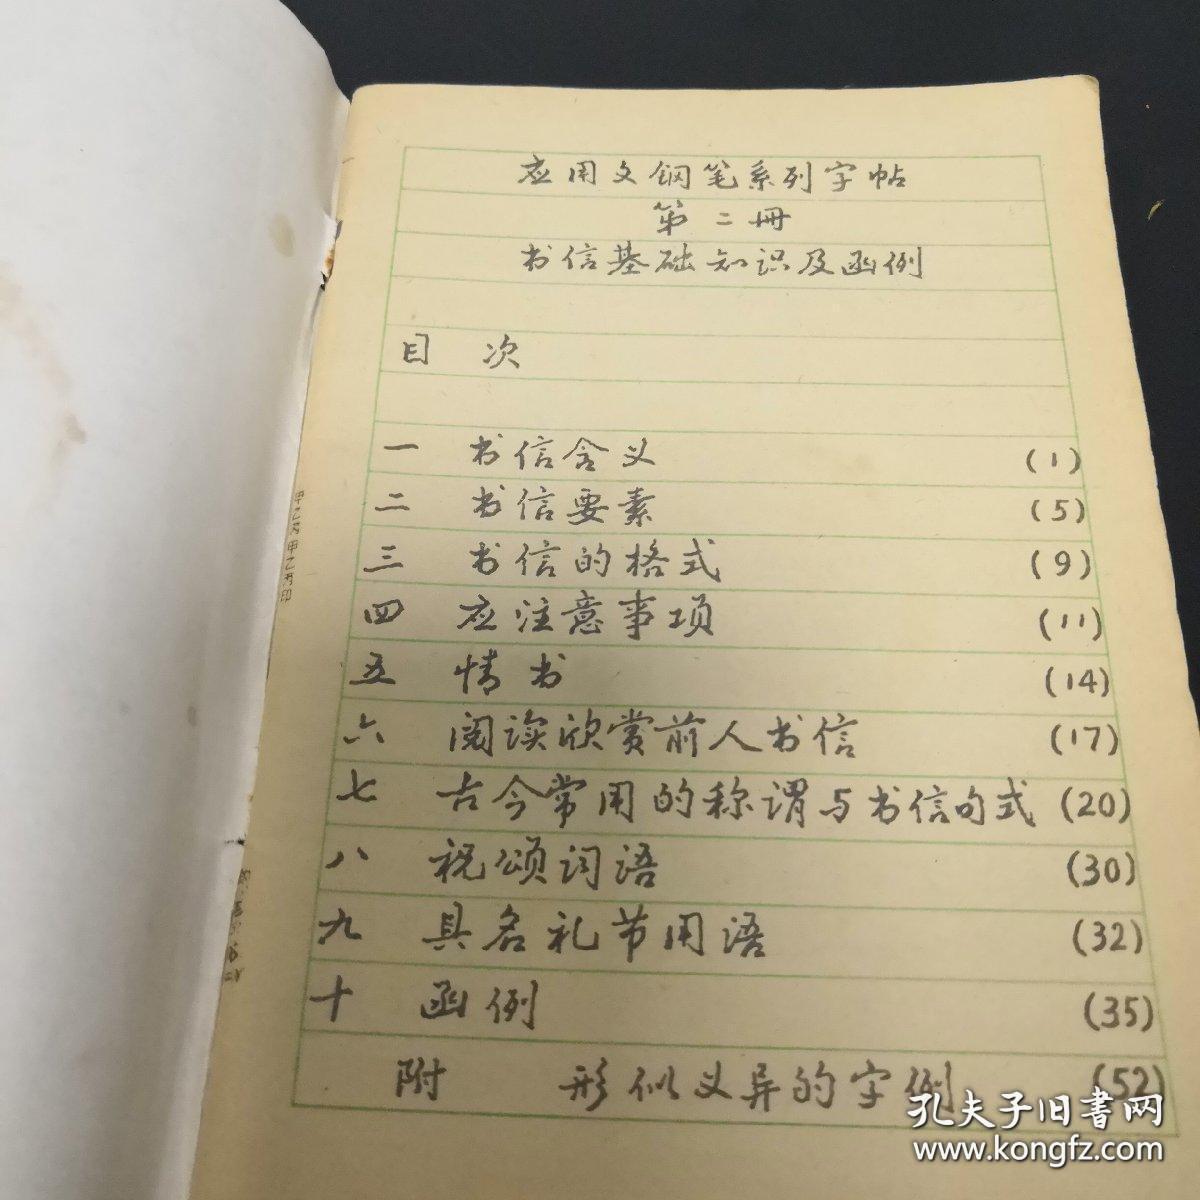 应用文钢笔系列字帖
第二册
书信基础知识及函例
目 次
一 书信含义 (1)
二 书信要素 (5)
三 书信的格式 (9)
四 应注意事项 (11)
五 情书 (14)
六 阅读欣赏前人书信 (17)
七 古今常用的称谓与书信句式 (20)
八 祝颂词语 (30)
九 具名礼节用语 (32)
十 函例 (35)
附 形似义异的字例 (52)
孔夫子旧书网
www.kongfz.com